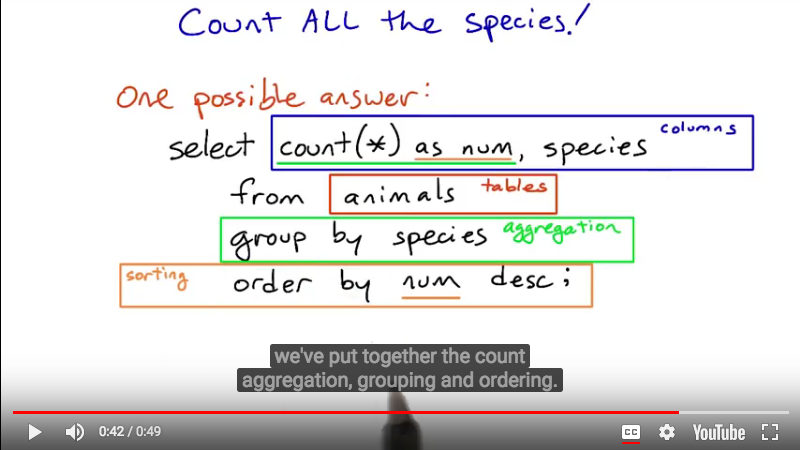 Count ALL the species!
One possible answer:
select count(*) as num, species columns
from animals tables
group by species aggregation
sorting order by num desc;
we've put together the count
aggregation, grouping and ordering.
0:42 / 0:49
CC
YouTube